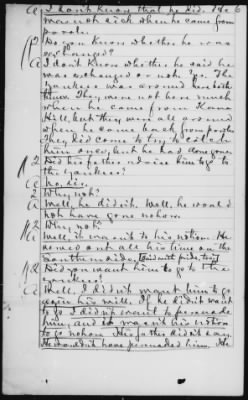 A I don't know that he did. He 6
was not sick when he came from
parole.
Q Do you know whether he was
exchanged?
A I don't know whether he said he
was exchanged or not. The
Yankees was around here both
times. They were not here much
when he came from
Hill, but they were all around
when he came back from parole
They did come to try to catch
him once, but he had done gone.
Q Did his father advise him to go to
the Yankees?
A No, sir.
Q Why not?
A Well, he didn't. Well, he would
not have gone nohow.
Q Why not?
A Well, it warn't to his notion. He
served out all his time on the
South side,
Q Did you want him to go to the
Yankees?
A Well, I didn't want him to go
agin his will. If he didn't want
to go I didn't want to persuade
him, and it warn't his notion
to go nohow. His father didn't say
He couldn't have persuaded him. He